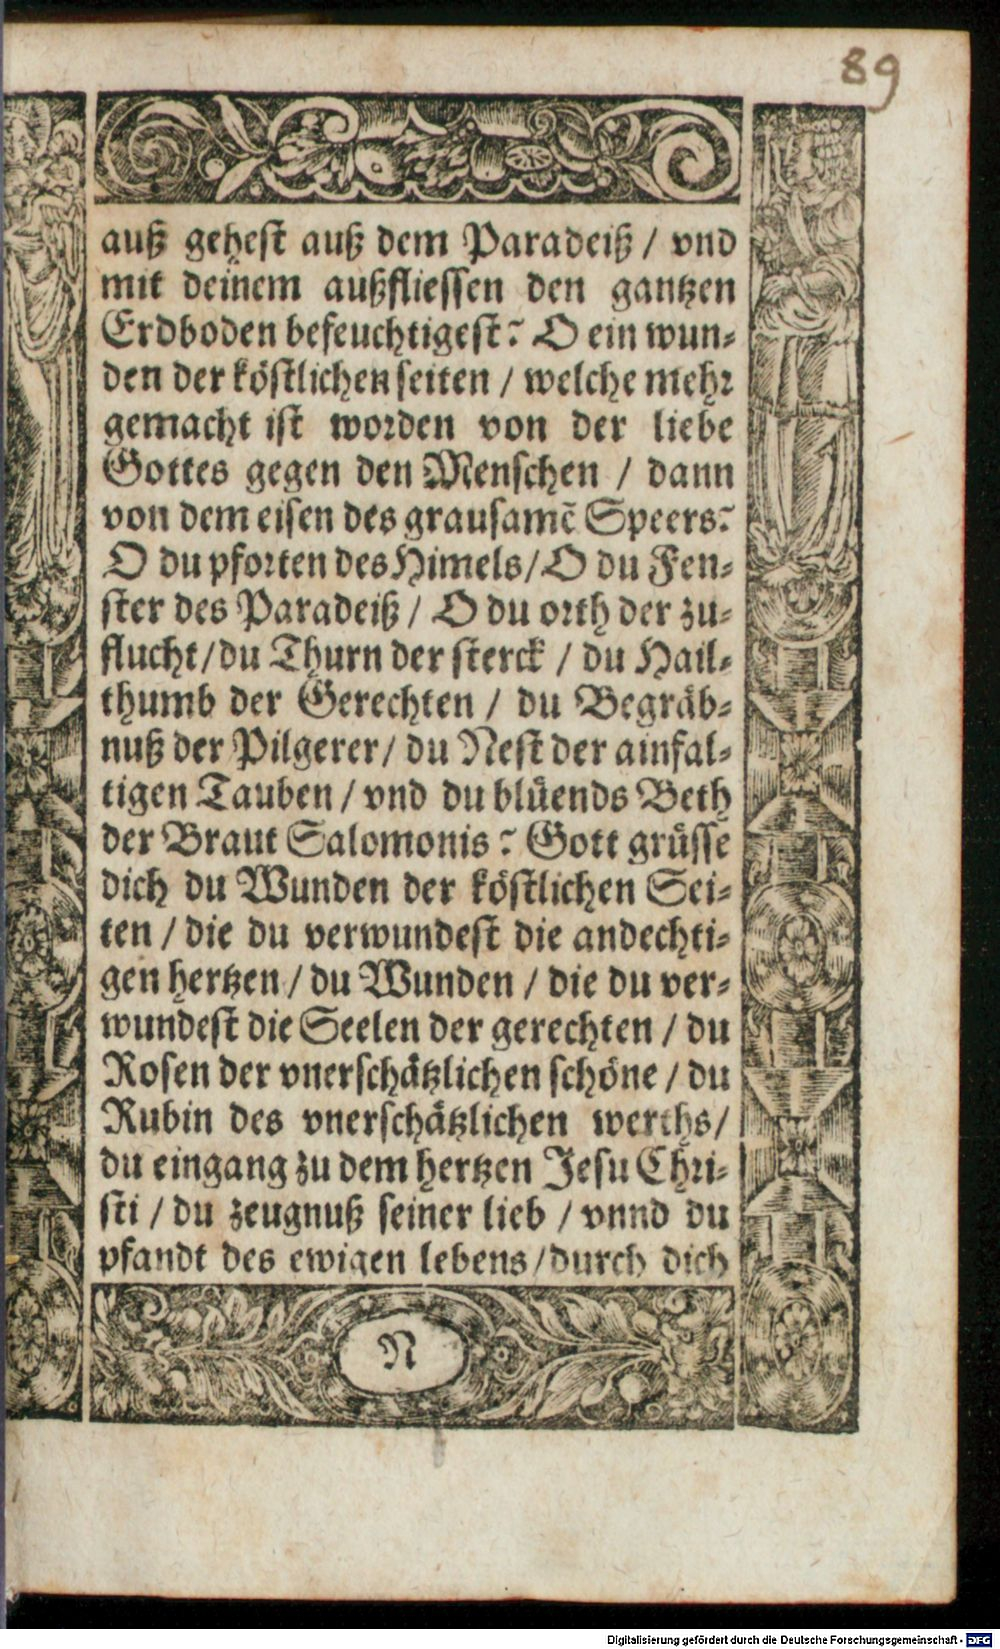 89
auß gehest auß dem Paradeiß / vnd
mit deinem außfliessen den gantzen
Erdboden befeuchtigest? O ein wun⸗
den der köstlichen seiten / welche mehr
gemacht ist worden von der liebe
Gottes gegen den Menschen / dann
von dem eisen des grausamẽ Speers?
O du pforten des Himels / O du Fen⸗
ster des Paradeiß / O du orth der zu⸗
flucht / du Thurn der sterck / du Hail⸗
thumb der Gerechten / du Begräb⸗
nuß der Pilgerer / du Nest der ainfal⸗
tigen Tauben / vnd du blüends Beth
der Braut Salomonis? Gott grüsse
dich du Wunden der köstlichen Sei⸗
ten / die du verwundest die andechti⸗
gen hertzen / du Wunden / die du ver⸗
wundest die Seelen der gerechten / du
Rosen der vnerschätzlichen schöne / du
Rubin des vnerschätzlichen werths /
du eingang zu dem hertzen Jesu Chri⸗
sti / du zeugnuß seiner lieb / vnnd du
pfandt des ewigen lebens / durch dich
N
Digitalisierung gefördert durch die Deutsche Forschungsgemeinschaft - DFG